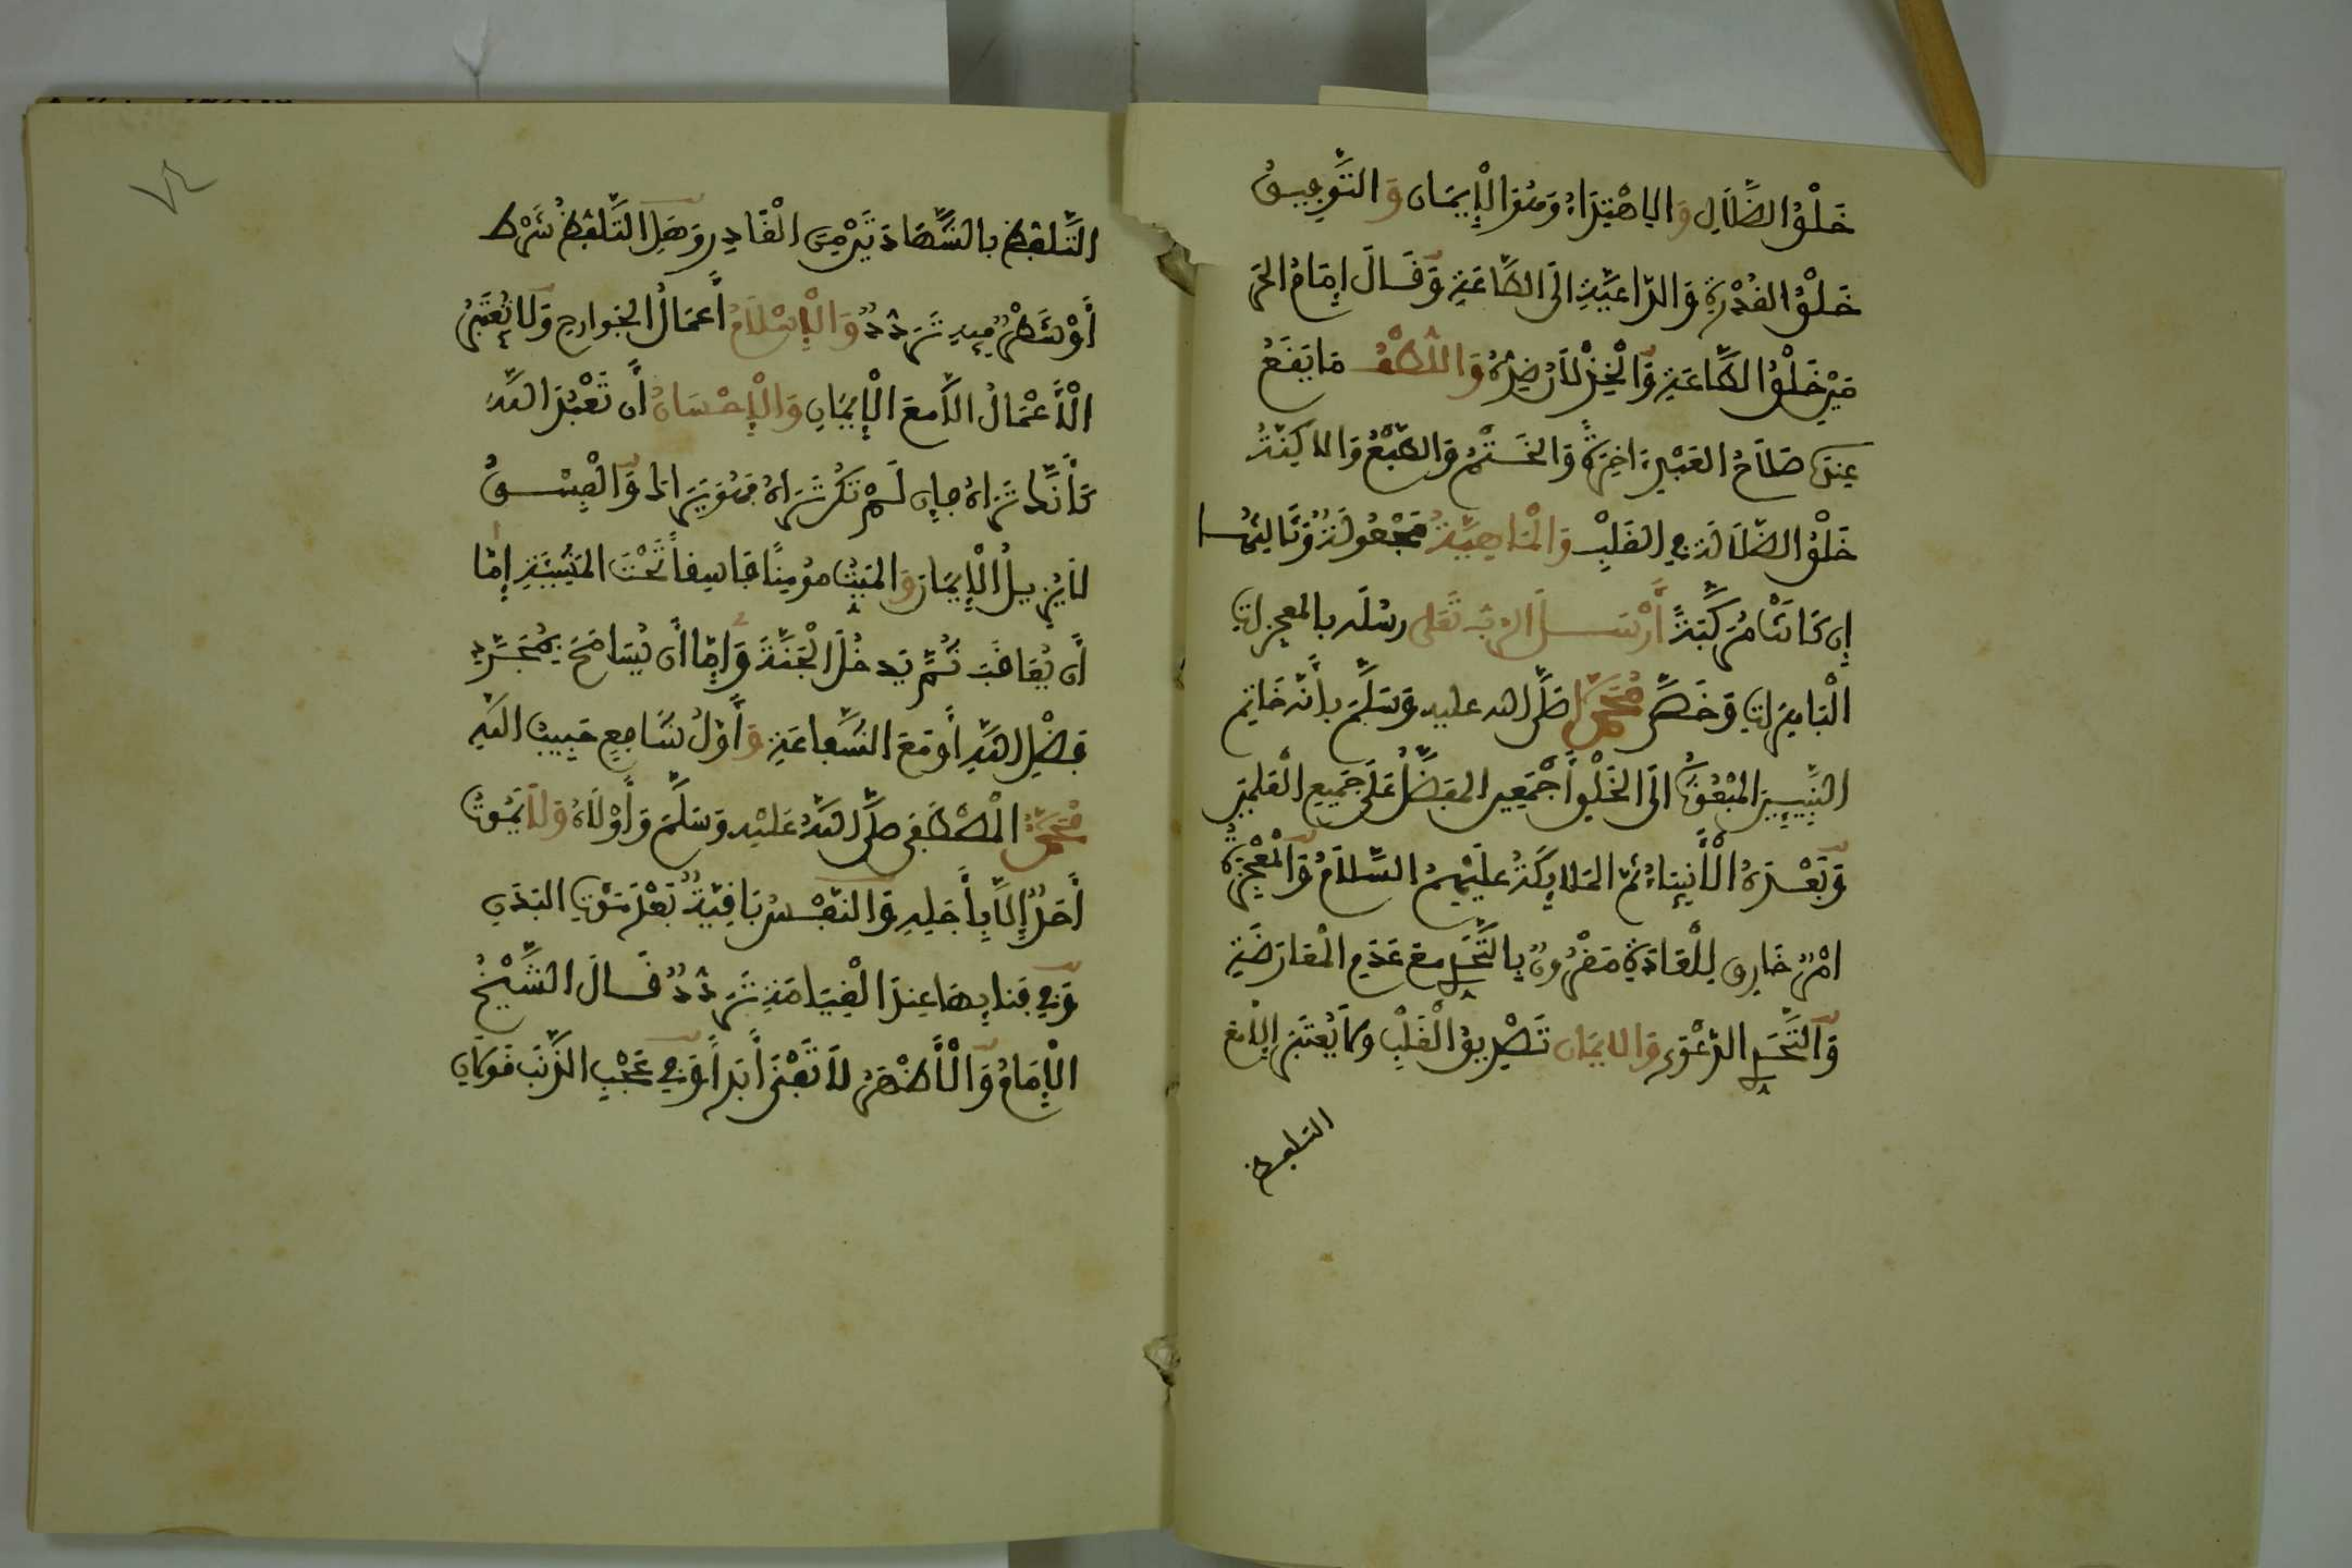 خَلْقُ الضَّلَالِ وَالِاهْتِدَاءُ وَهُوَ الْإِيمَان وَالتَّوفِيقُ
خَلْقُ القُدْرَةِ وَالدَّاعِيَّةِ الَى الطَّاعَةِ وَقَالَ إِمَامُ الحَرَ
مَيْنِ خَلْقُ الطَّاعَةِ وَالْخِذْلَانُ ضِدُّهُ وَاللُّطْفُ مَا يَقَعُ
عِندَهُ صَلَاحُ العَبْدِ ءَاخِرَةً وَالخَتْمُ وَالطَّبْعُ وَالاكِنَّةُ
خَلْقُ الضَّلَالَةِ فِي القَلْبِ وَالْمَاهِيَّةُ مَجْعُولَةٌ وَثَالِثُهَا
إِن كَانَتْ مُرَكَّبَةً أَرْسَلَ الرَّبُّ تَعَلى رسُلَه بالمعجزاتِ
الْبَاهِرَاتِ وَخَصَّ مُحَمَّدا صَلَّى الله عليه وَسَلَّمَ بأنَّه خَاتِم
النَّبِيِّين المَبْعُوثُ الَى الخَلْقِ أَجْمَعِين المفَضَّلُ عَلَى جَمِيعِ الْعَلَمِين
وَبَعْدَهُ الْأَنبِيَاءُ ثمَّ المَلَايِكَةُ عليْهِمُ السَّلَامُ وَالْمُعْجِزَةُ
امْرٌ خَارِق لِلْعَادَةِ مَقْرُونٌ بِالتَّحَدِّي مع عَدَمِ الْمعَارَضَةِ
وَالتَّحَدِّي الدَّعْوَى وَالايمَان تَصْدِيقُ الْقَلْبِ وَلَا يُعْتَبَرُ إِلَّا مَعَ
التلفظ
التَّلفظِ بالشَّهَادَتَيْنِ مِنَ الْقَادِرِ وَهَلِ التَّلَفُّظُ شَرْط
أَوْ شَطْرٌ فِيهِ تَرَدُّدٌ وَالْإِسْلَامُ أَعمَالُ الجَوَارِحِ وَلَا تُعْتَبَرُ
الْأَعْمَالُ الَّا مَعَ الْإِيمَانِ وَالْإِحْسَانُ أَن تَعْبُدَ اللَّهَ
كَأَنَّكَ تَرَاهُ فإِن لَمْ تَكُن تَرَاهُ فَهُوَ يَرَاكَ وَالْفِسْقُ
لَا يُزِيلُ الْإِيمَانَ وَالمَيِّتُ مومِنًا فَاسِقاً تَحْتَ المَشِيئَةِ إِمَّا
أَن يُعَاقَبَ ثُمَّ يَدخُلَ الْجَنَّةَ وَإِمَّا أَن يُسَامَحَ بِمُجَرَّدِ
فَضْلِ اللهِ أَو مَعَ الشَّفَاعَةِ وَأَوَّلُ شَافِعٍ حَبِيبُ اللَّهِ
مُحَمَّدٌ الْمُصْطَفَى صَلَّى اللهُ عَلَيْه وَسَلَّمَ وَأَوْلَاهُ وَلَا يَمُوتُ
أَحَدٌ إِلَّا بِأَجَلِهِ وَالنَّفْسُ بَاقِيَةٌ بَعْدَ مَوْتِ البَدَنِ
وَفِي فَنَايِهَا عِندَ الْقِيَامَةِ تَرَدُّدٌ قَالَ الشَّيْخُ
الْإِمَامُ وَالْأَظْهَرُ لَا تَفْنَى أَبَداً وَفِي عَجْبِ الذَّنَبِ قَولَانِ